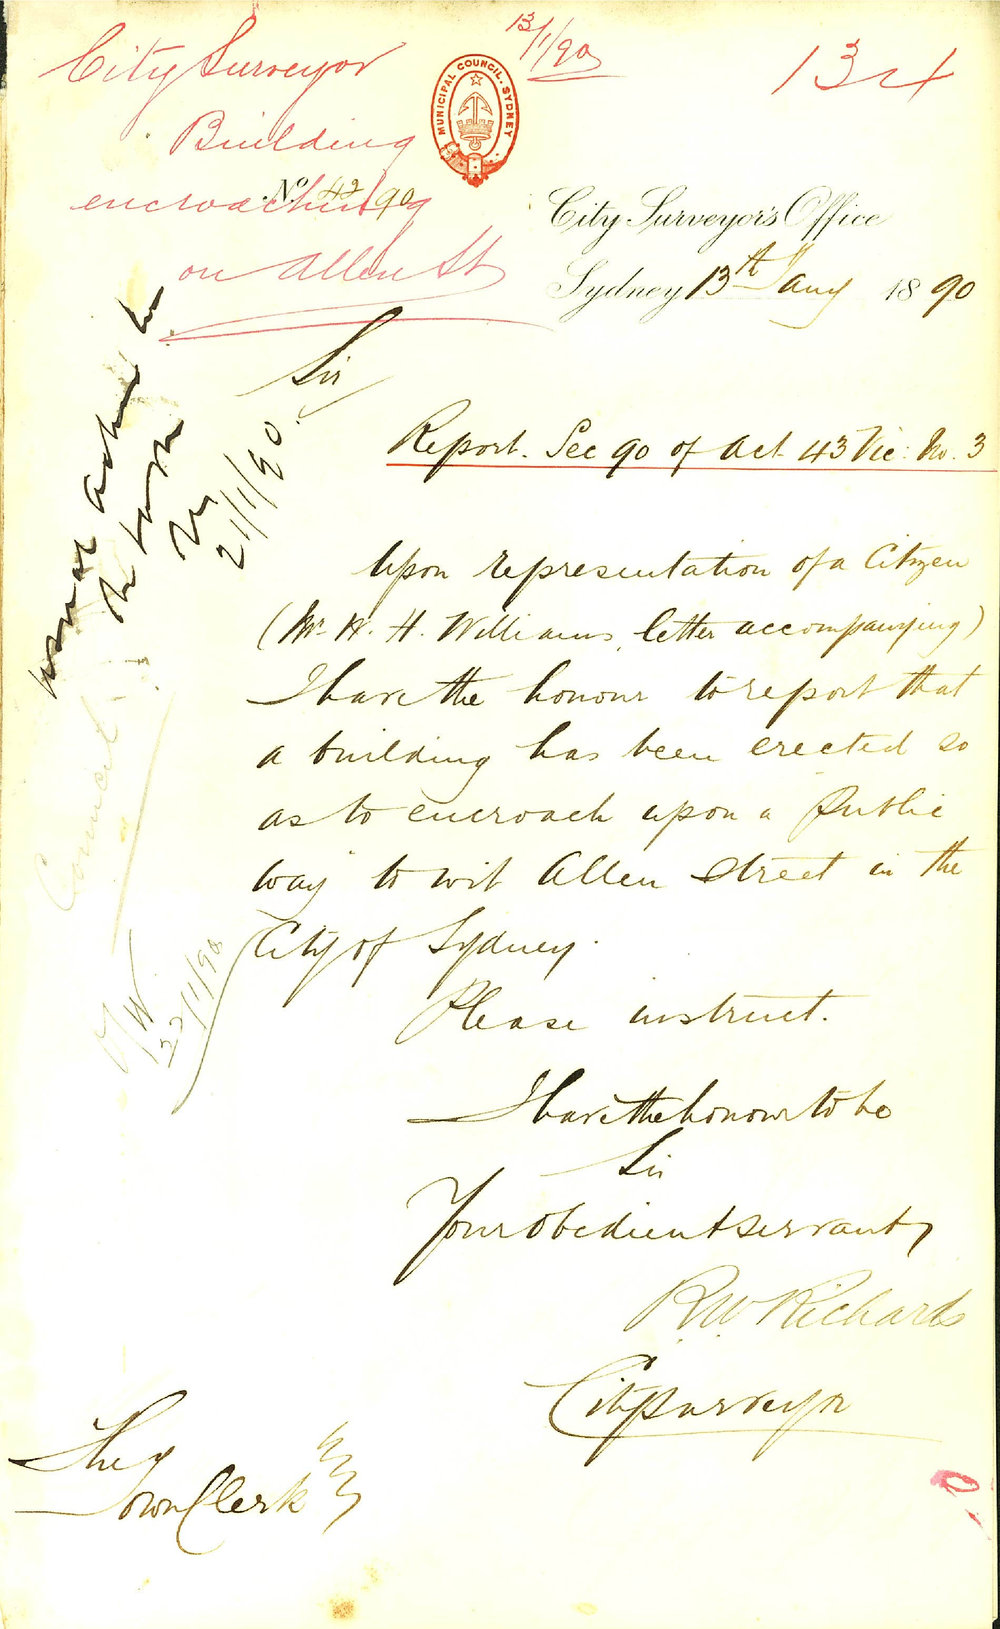 13/1/90
134
City Surveyor
Building
encroaching
on Allen St
MUNICIPAL COUNCIL. SYDNEY
No. 42 90
City Surveyor's Office
Sydney 13th Jany 1890
Sir
Report. Sec 90 of Act 43 Vic: No. 3
Upon representation of a Citizen
(Mr. W. H. Williams, letter accompanying)
I have the honour to report that
a building has been erected so
as to encroach upon a Public
way to wit Allen Street in the
City of Sydney.
Please instruct.
I have the honour to be
Sir
Your obedient servant
R.W. Richards
City Surveyor
The
Town Clerk
21/1/90
Council
22/1/90